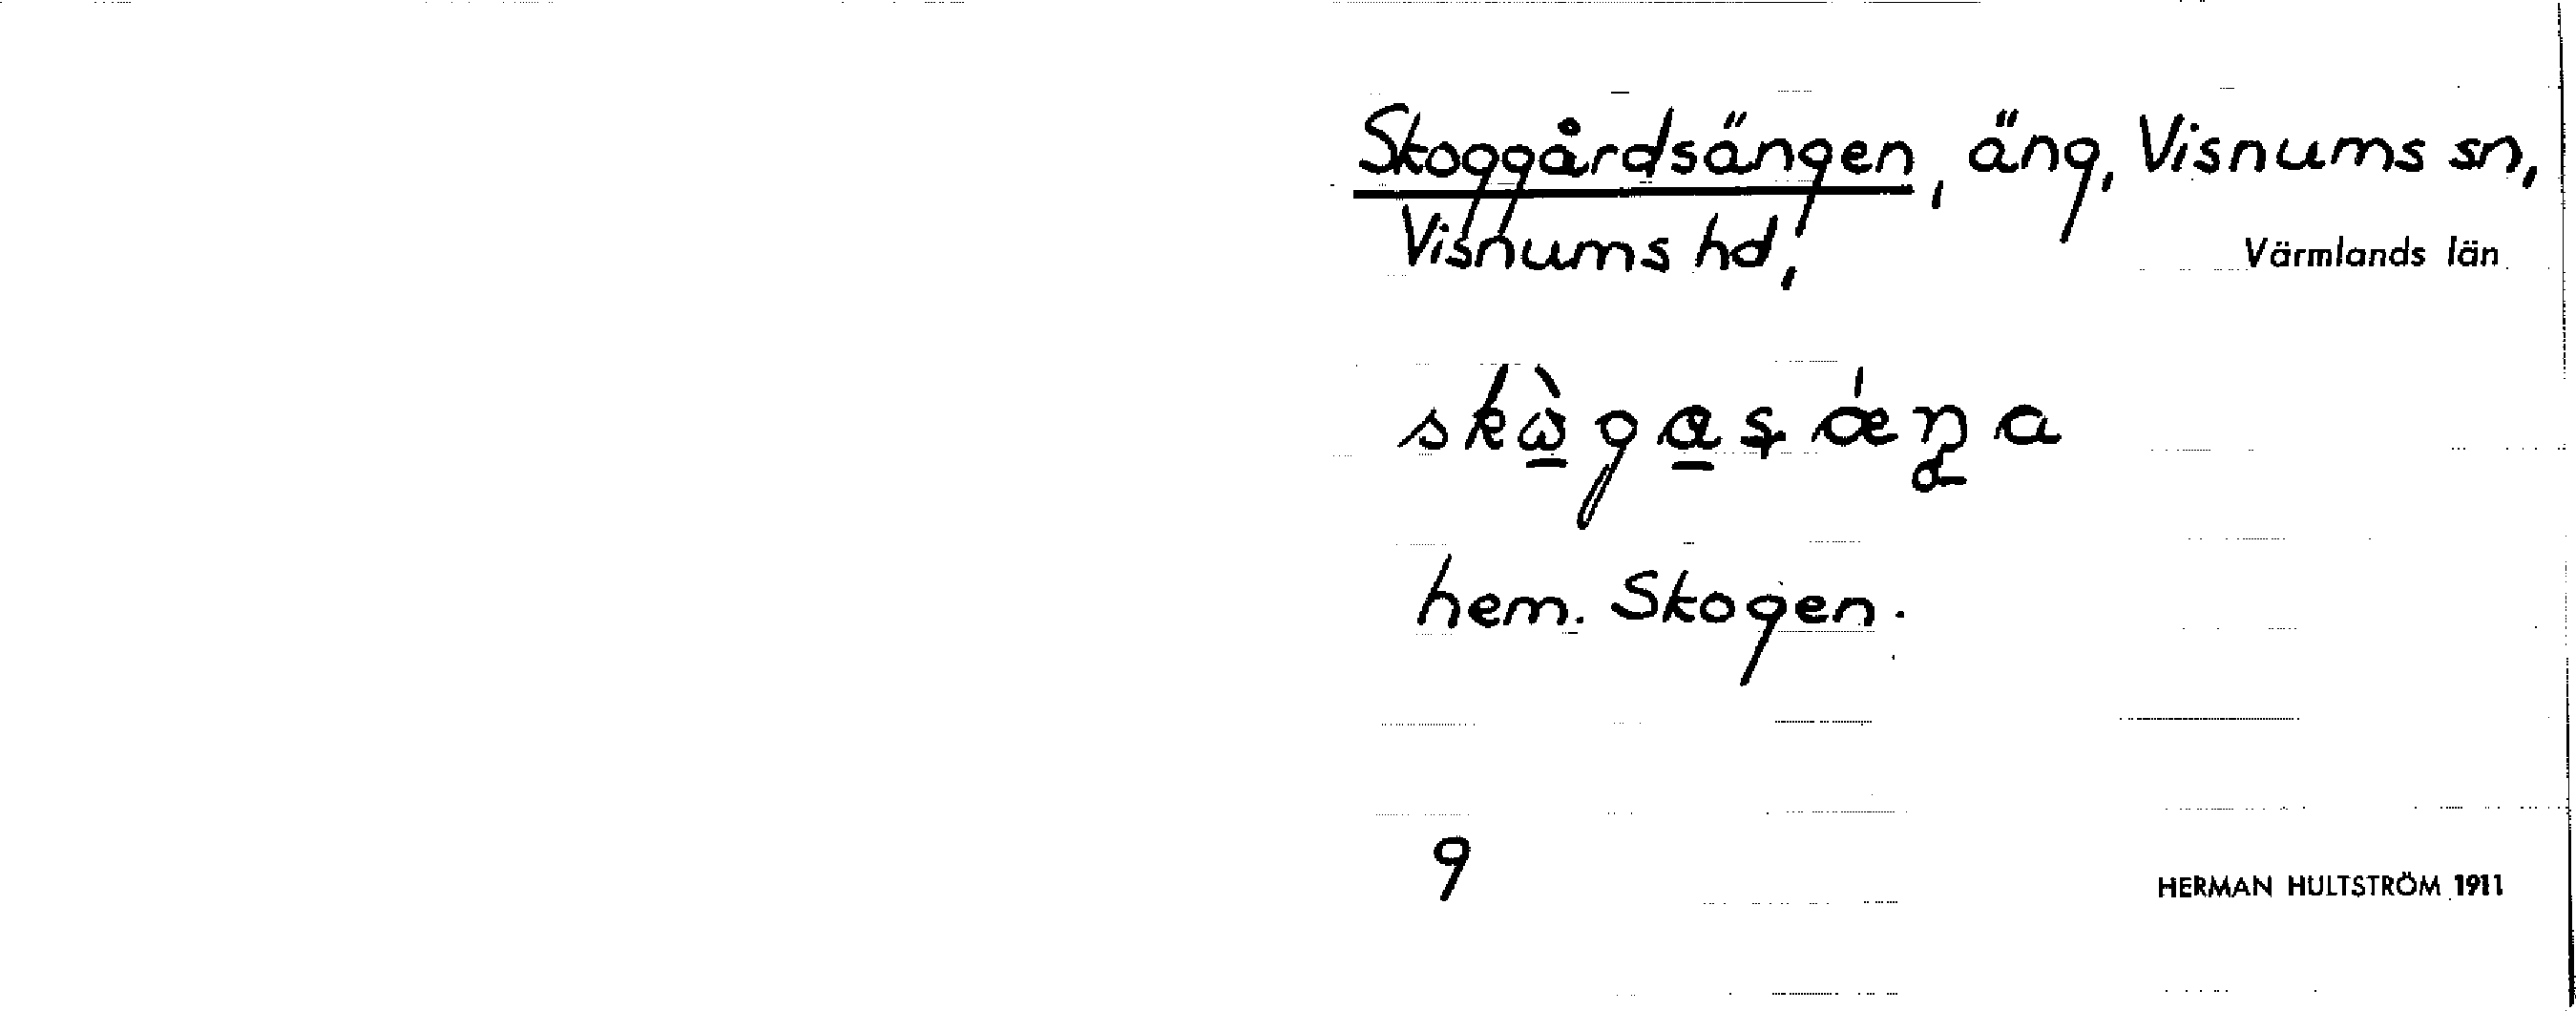 Skoggårdsängen, äng, Visnums sn,
Visnums hd, Värmlands län
skὼgaşǽŋa
hem. Skogen.
9
HERMAN HULTSTRÖM 1911